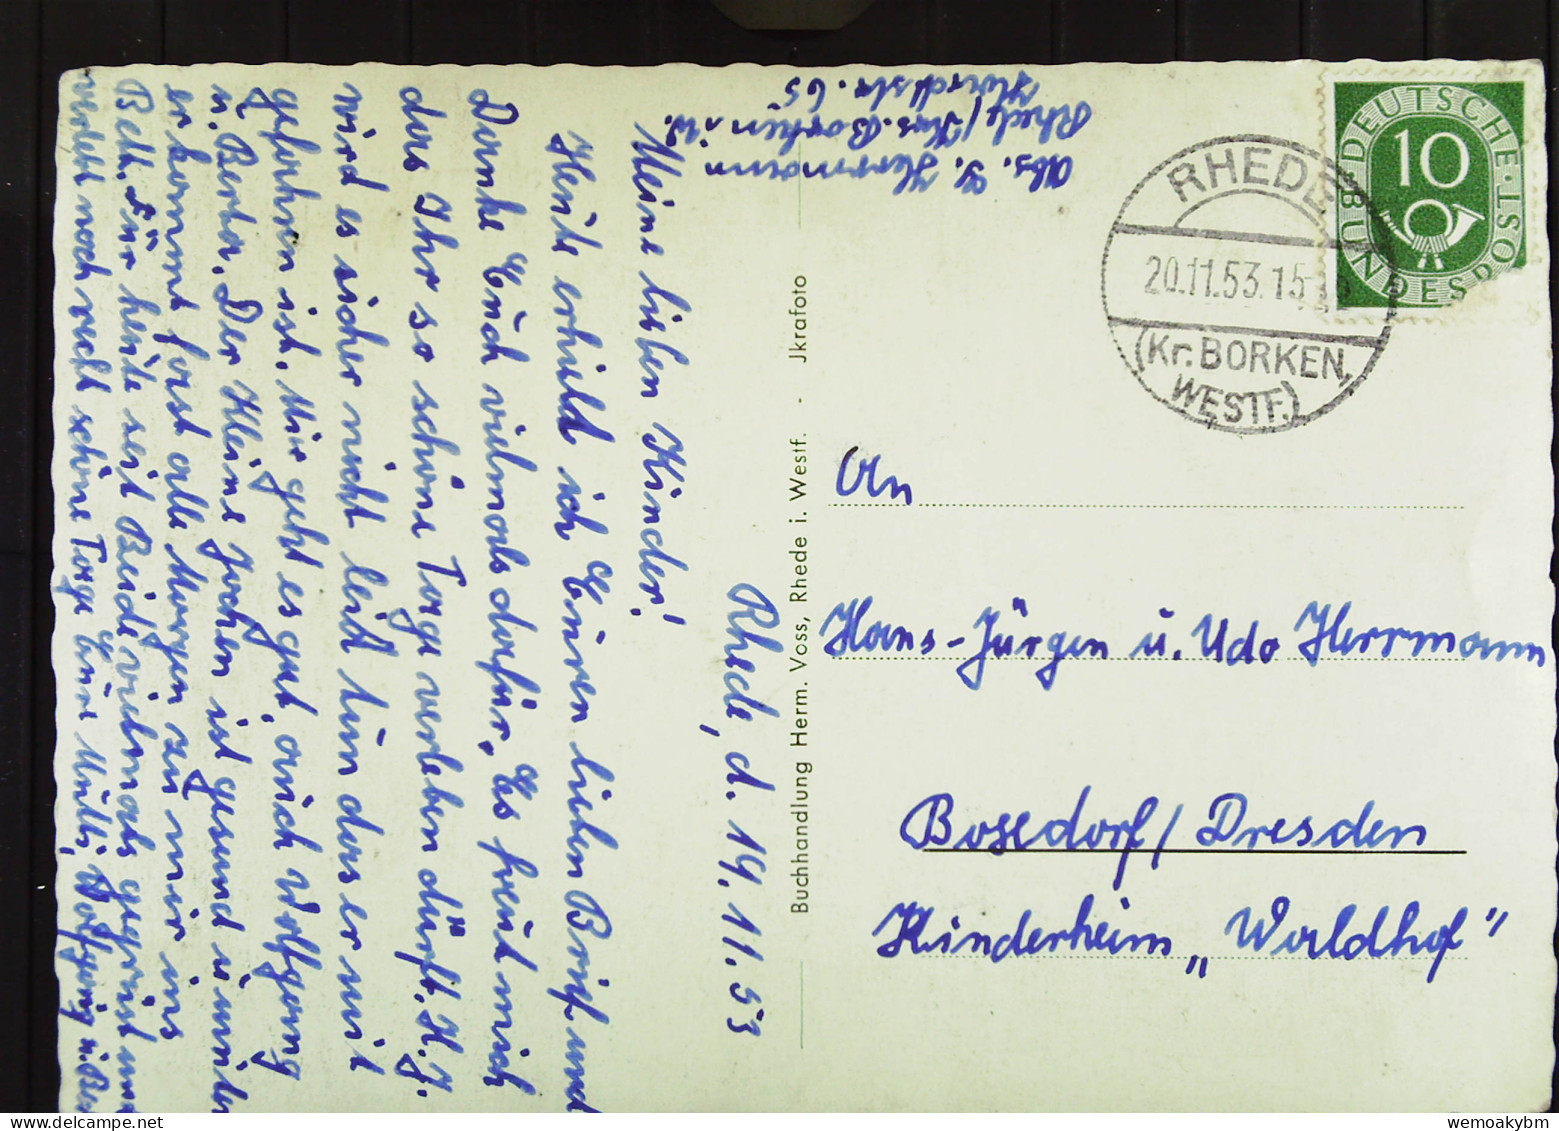 Abs. J. Herrmann
Rhede/Krs. Borken i. W.
Hardtstr. 65
Rhede, d. 19.11.53
Meine lieben Kinder!
Heute erhielt ich Euren lieben Brief und
Danke Euch vielmals dafür. Es freut mich
das Ihr so schöne Tage verleben dürft. H. J.
wird es sicher nicht leid tun das er mit
gefahren ist. Mir geht es gut, auch Wolfgang
u. Berta. Der Kleine Jochen ist gesund u. munter
er kommt fast alle Morgen zu mir ins
Bett. Für heute seit Beide vielmals gegrüst und
verlebt noch recht schöne Tage Eure Mutti, Wolfgang u. Ber
Buchhandlung Herm. Voss, Rhede i. Westf. - Jkrafoto
DEUTSCHE BUNDESPOST
10
RHEDE
20.11.53.15
(Kr. BORKEN,
WESTF.)
An
Hans-Jürgen u. Udo Herrmann
Bosedorf/Dresden
Kinderheim „Waldhof"
wemoakybm